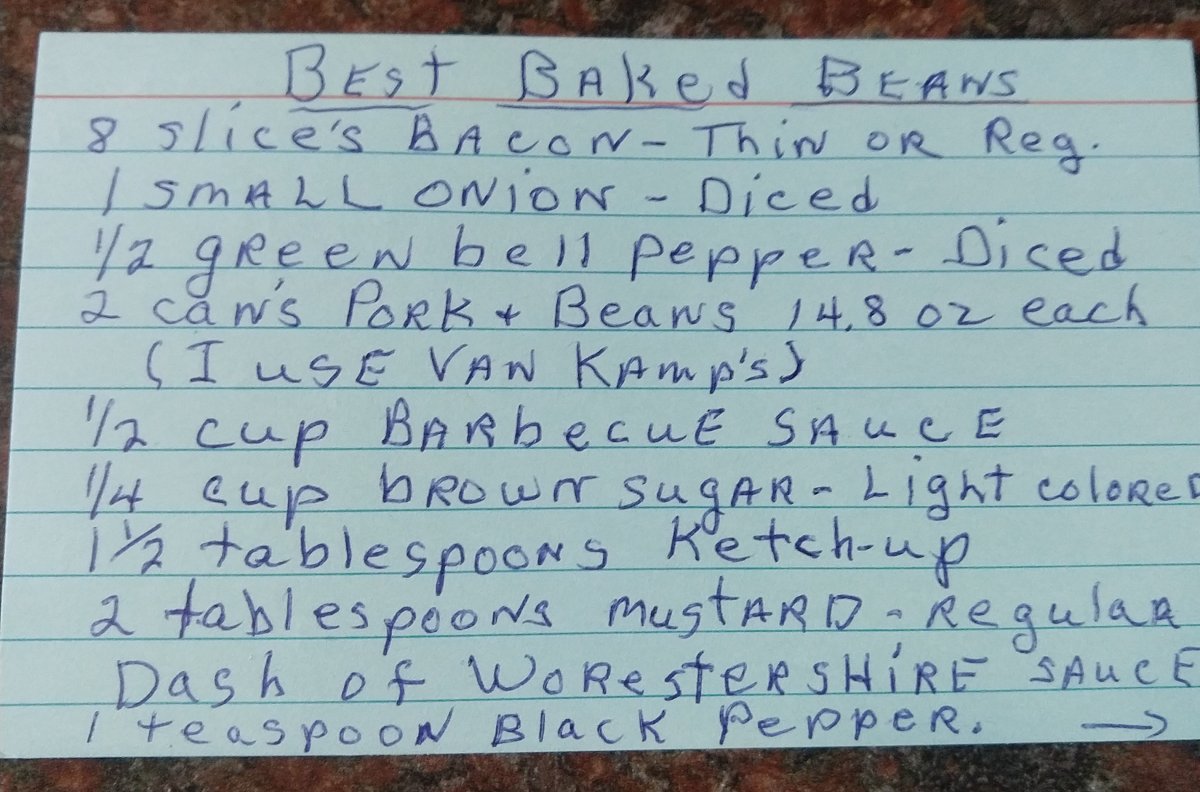 Best Baked Beans
8 slice's Bacon - Thin or Reg.
1 small onion - Diced
1/2 green bell pepper - Diced
2 can's Pork + Beans 14.8 oz each
(I use Van Kamp's)
1/2 cup Barbecue Sauce
1/4 cup brown sugar - Light colored
1 1/2 tablespoons Ketch-up
2 tablespoons mustard - Regular
Dash of Worestershire Sauce
1 teaspoon Black Pepper. →